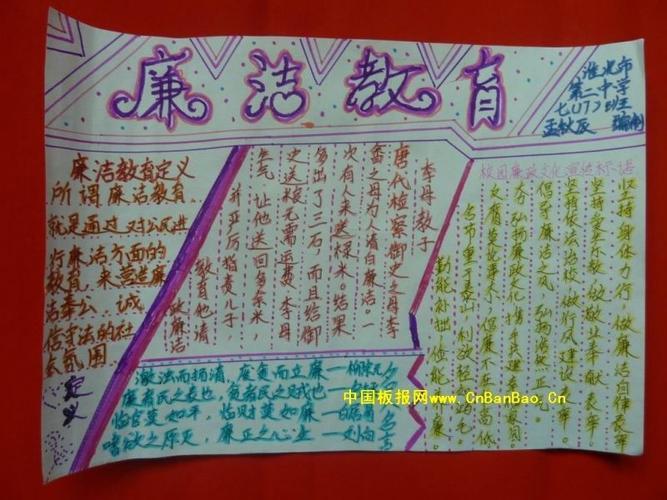 廉洁教育
淮北市
第二中学
七(17)班
孟秋辰 编制
廉洁教育定义
所谓廉洁教育
就是通过对公民进
行廉洁方面的
教育,来营造廉
洁奉公、诚
信守法的社
会氛围
定义
李母教子
唐代检察御史之母李
畲之母为人清白廉洁。一
次有人来送禄米。结果
多出了三石,而且给御
史送粮无需运费,李母
生气,让他送回多余米,
并严厉指责儿子,
教育他清
政廉洁
校园廉政文化宣传标语
坚持身体力行,做廉洁自律表率
坚持爱岗乐教,做敬业奉献表率。
坚持依法治校,做行风建设表率。
倡导廉洁之风,弘扬浩然正气。
弘扬廉政文化
名节重于泰山,利欲轻
勤能补拙,俭能养廉。
激浊而扬清,废贪而立廉—柳宗元
廉者民之表也,贪者民之贼也
临官莫如平,临财莫如廉
嗜欲之原灭,廉正之心生—刘向
名言
中国板报网www.CnBanBao.Cn